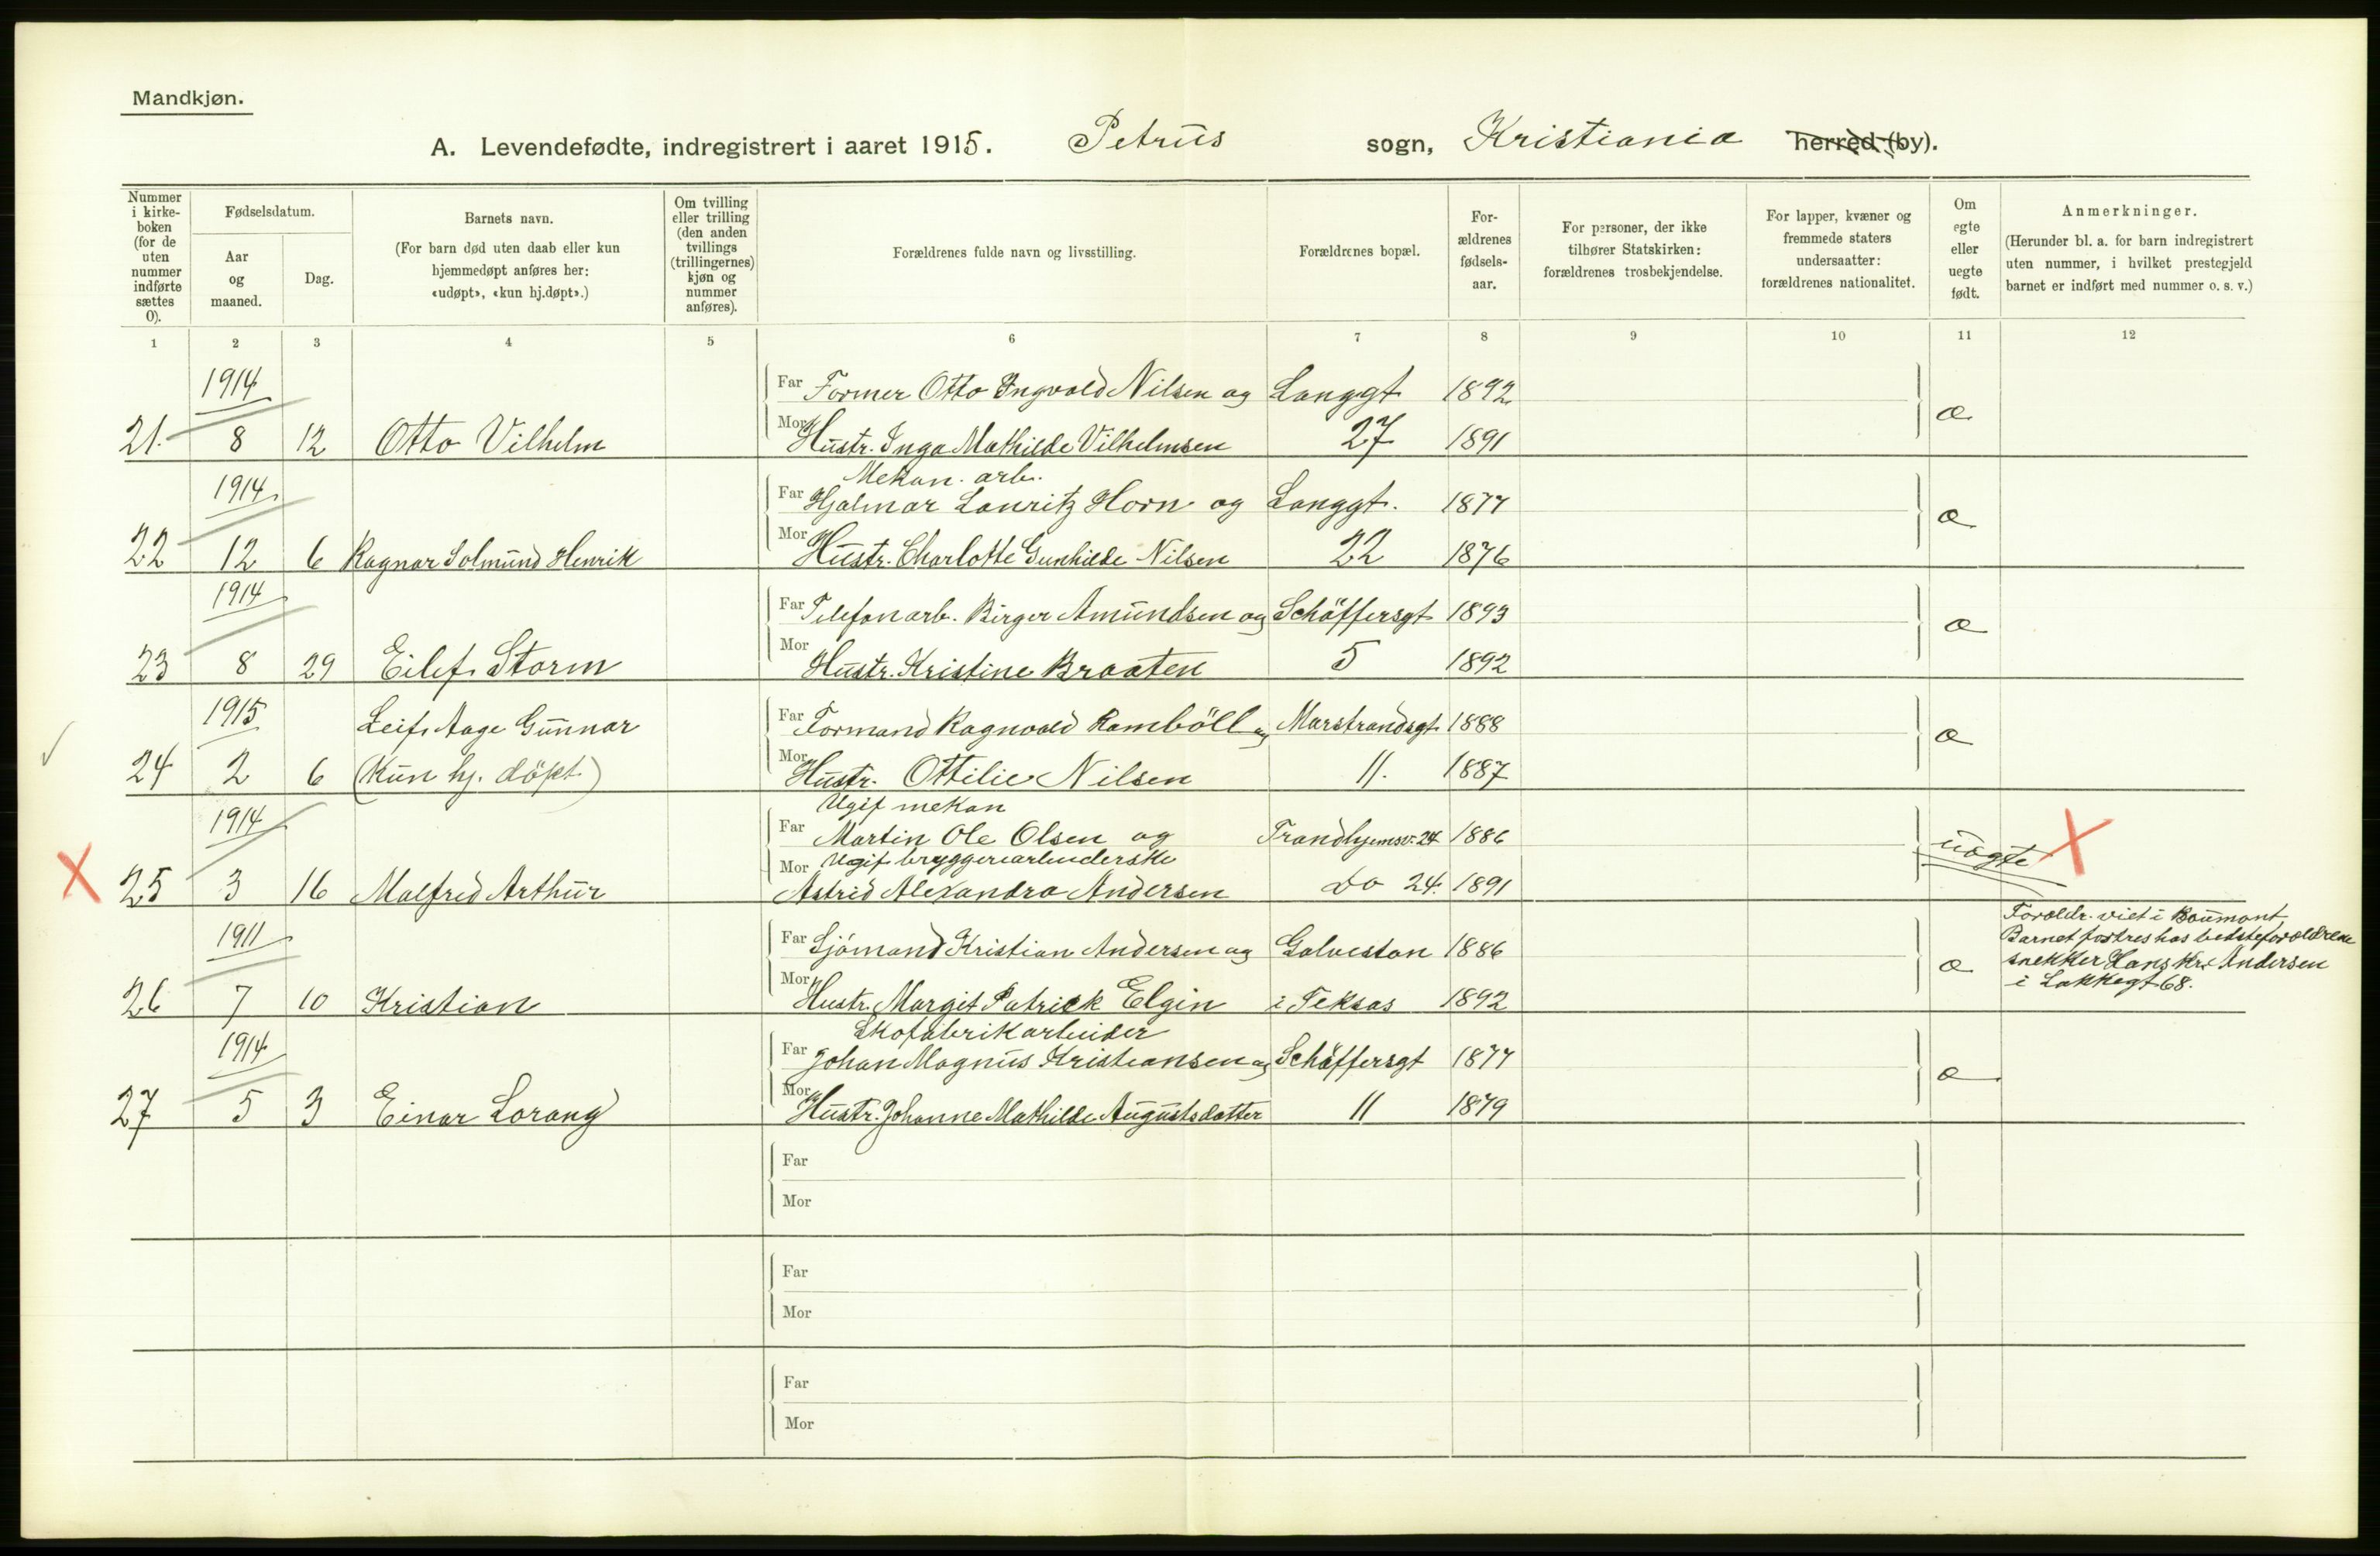 Mandkjøn.
A. Levendefødte, indregistrert i aaret 1915. Petrus sogn, Kristiania herred (by).
Nummer i kirke-boken (for de uten nummer indførte sættes 0).
Fødselsdatum.
Aar og maaned.
Dag.
Barnets navn.
(For barn død uten daab eller kun hjemmedøpt anføres her: «udøpt», «kun hj.døpt».)
Om tvilling eller trilling (den anden tvillings (trillingernes) kjøn og nummer anføres).
Forældrenes fulde navn og livsstilling.
Forældrenes bopæl.
For-ældrenes fødsels-aar.
For personer, der ikke tilhører Statskirken: forældrenes trosbekjendelse.
For lapper, kvæner og fremmede staters undersaatter: forældrenes nationalitet.
Om egte eller uegte født.
Anmerkninger.
(Herunder bl. a. for barn indregistrert uten nummer, i hvilket prestegjeld barnet er indført med nummer o. s. v.)
1 2 3 4 5 6 7 8 9 10 11 12
1914 Far Former Otto Ingvald Nilsen og Langgt 1892
21. 8 12 Otto Vilhelm Mor Hustr. Inga Mathilde Vilhelmsen 27 1891 æ
Mekan. arb.
1914 Far Hjalmar Lauritz Horn og Langgt. 1877
22 12 6 Ragnar Solmund Henrik Mor Hustr. Charlotte Gunhilde Nilsen 22 1876 æ
1914 Far Telefonarb. Birger Amundsen og Schäffersgt 1893
23 8 29 Eilef Storm Mor Hustr. Kristine Braaten 5 1892 æ
1915 Leif Aage Gunnar Far Formand Ragnvald Ramböll og Marstrandsgt 1888
24 2 6 (Kun hj. döpt) Mor Hustr. Ottilie Nilsen 11. 1887 æ
Ugif mekan
1914 Far Martin Ole Olsen og Trondhjemsv. 24 1886
Ugif bryggeriarbeiderske
25 3 16 Malfred Arthur Mor Astrid Alexandra Andersen Do 24. 1891 uægte
1911 Far Sjömand Kristian Andersen og Galveston 1886
26 7 10 Kristian Mor Hustr. Margit Patrick Elgin i Teksas 1892 æ
Foreldr. viet i Boumont
Barnet fostres hos bedsteforældrene
snekker Hans Kr. Andersen
i Lakkegt 68.
Skofabrikarbeider
1914 Far Johan Magnus Kristiansen og Schäffersgt 1877
27 5 3 Einar Lorang Mor Hustr. Johanne Mathilde Augustsdatter 11 1879 æ
Far
Mor
Far
Mor
Far
Mor